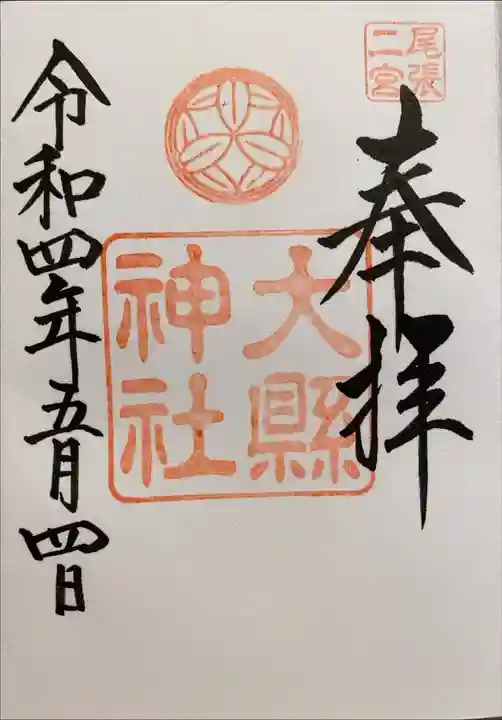 尾張
二宮
奉拝
大縣
神社
令和四年五月四日